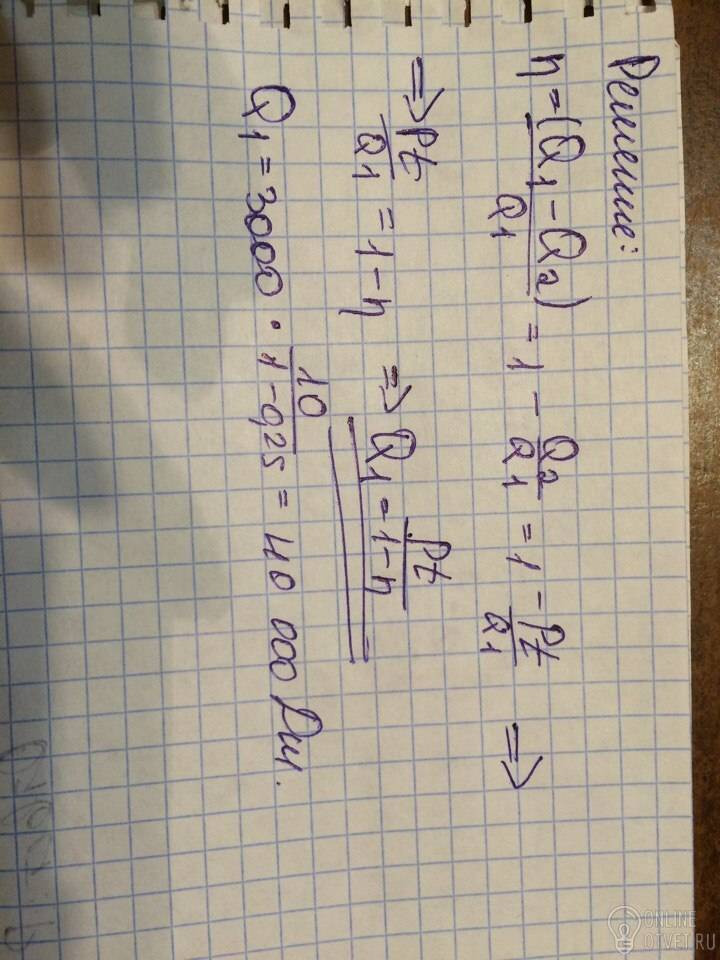 Решение:
η = (Q1 - Q2) / Q1 = 1 - Q2/Q1 = 1 - Pt/Q1 ⇒
⇒ Pt/Q1 = 1 - η ⇒ Q1 = Pt/(1 - η)
Q1 = 3000 · 10/(1 - 0,25) = 40 000 Дж.
ONLINE
OTVET.RU